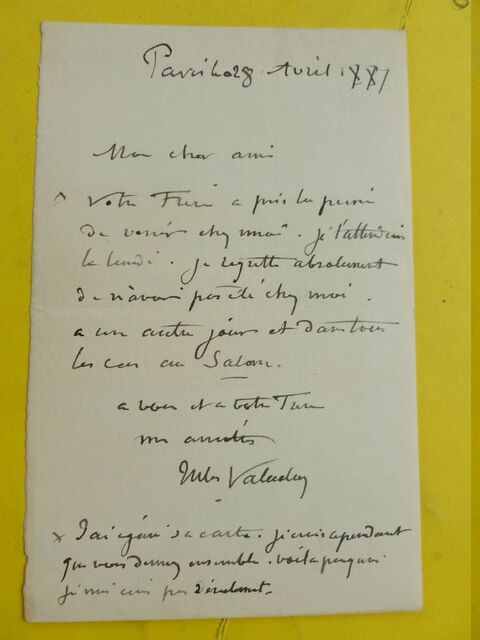 Paris le 28 Avril 1887
Mon cher ami
Votre Frère a pris la peine
de venir chez moi. je l'attendais
le lundi. je regrette absolument
de n'avoir pas été chez moi.
a un autre jour et dans tous
les cas au Salon.
a vous et a votre Frere
mes amitiés
Jules Valadon
x J'ai égaré sa carte. je crois cependant
que vous demeurez ensemble. voilà pourquoi
je lui pas